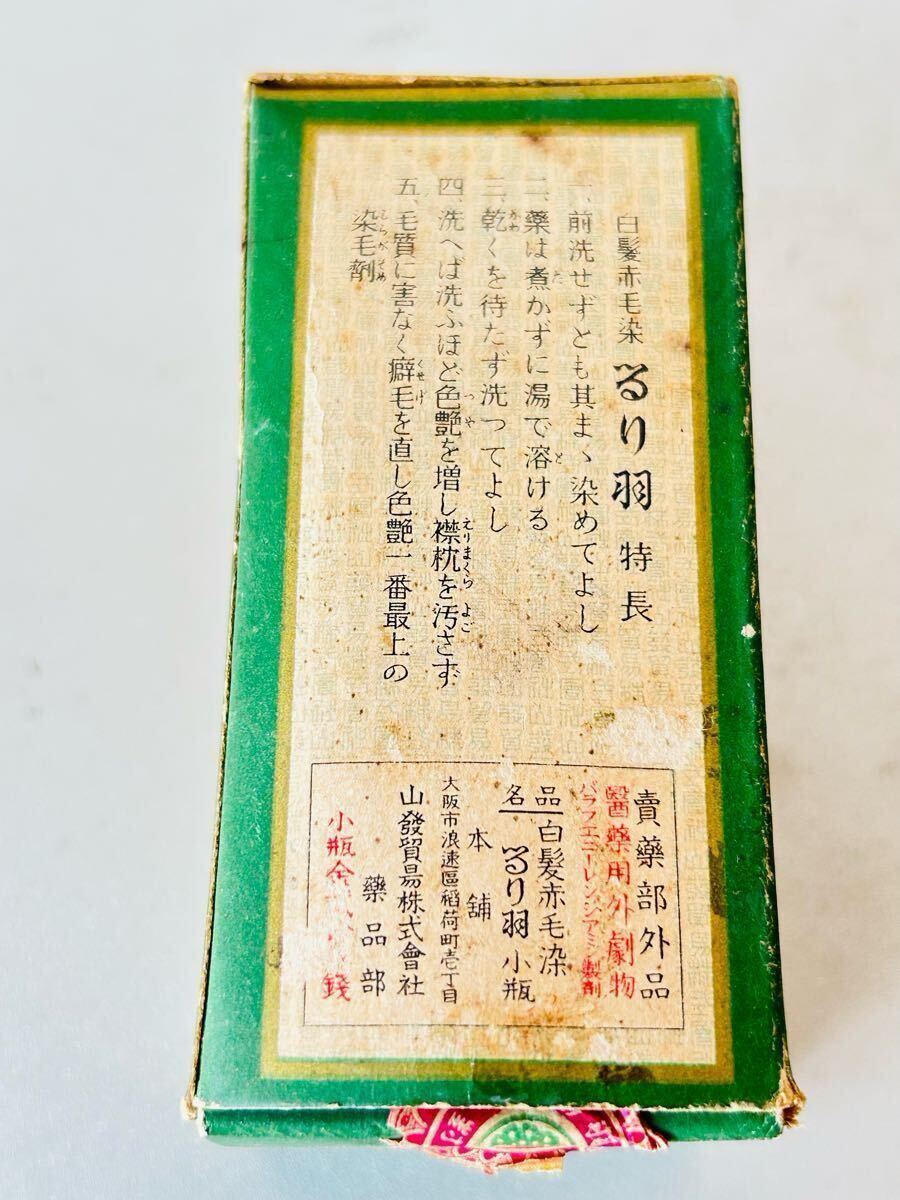 白髪赤毛染 るり羽 特長
一、前洗せずとも其まゝ染めてよし
二、藥は煮かずに湯で溶ける
三、乾くを待たず洗つてよし
四、洗へば洗ふほど色艶を増し襟枕を汚さず
五、毛質に害なく癖毛を直し色艶一番最上の
染毛劑
賣藥部外品
醫藥用外劇物
パラフエニーレンジアミン製剤
品名 白髪赤毛染 るり羽 小瓶
本舗
大阪市浪速區稻荷町壱丁目
山發貿易株式會社
藥品部
小瓶金 錢